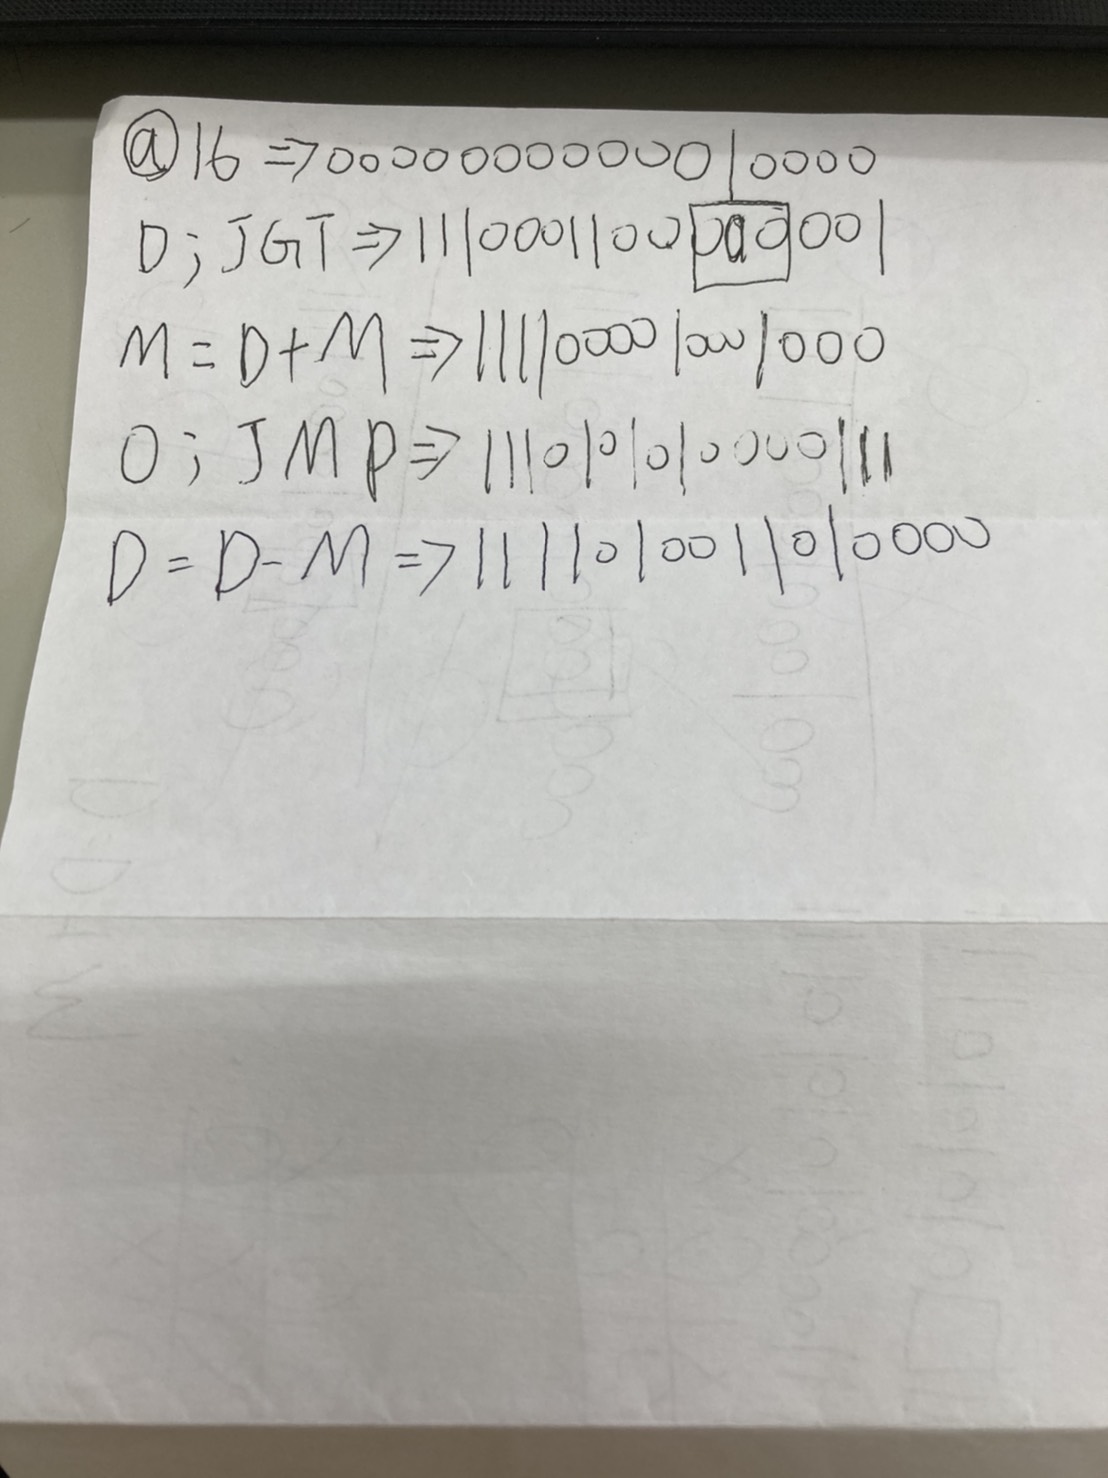 @16 => 0000000000010000
D;JGT => 1110001100000001
M=D+M => 1111000010001000
0;JMP => 1110101010000111
D=D-M => 1111010011010000